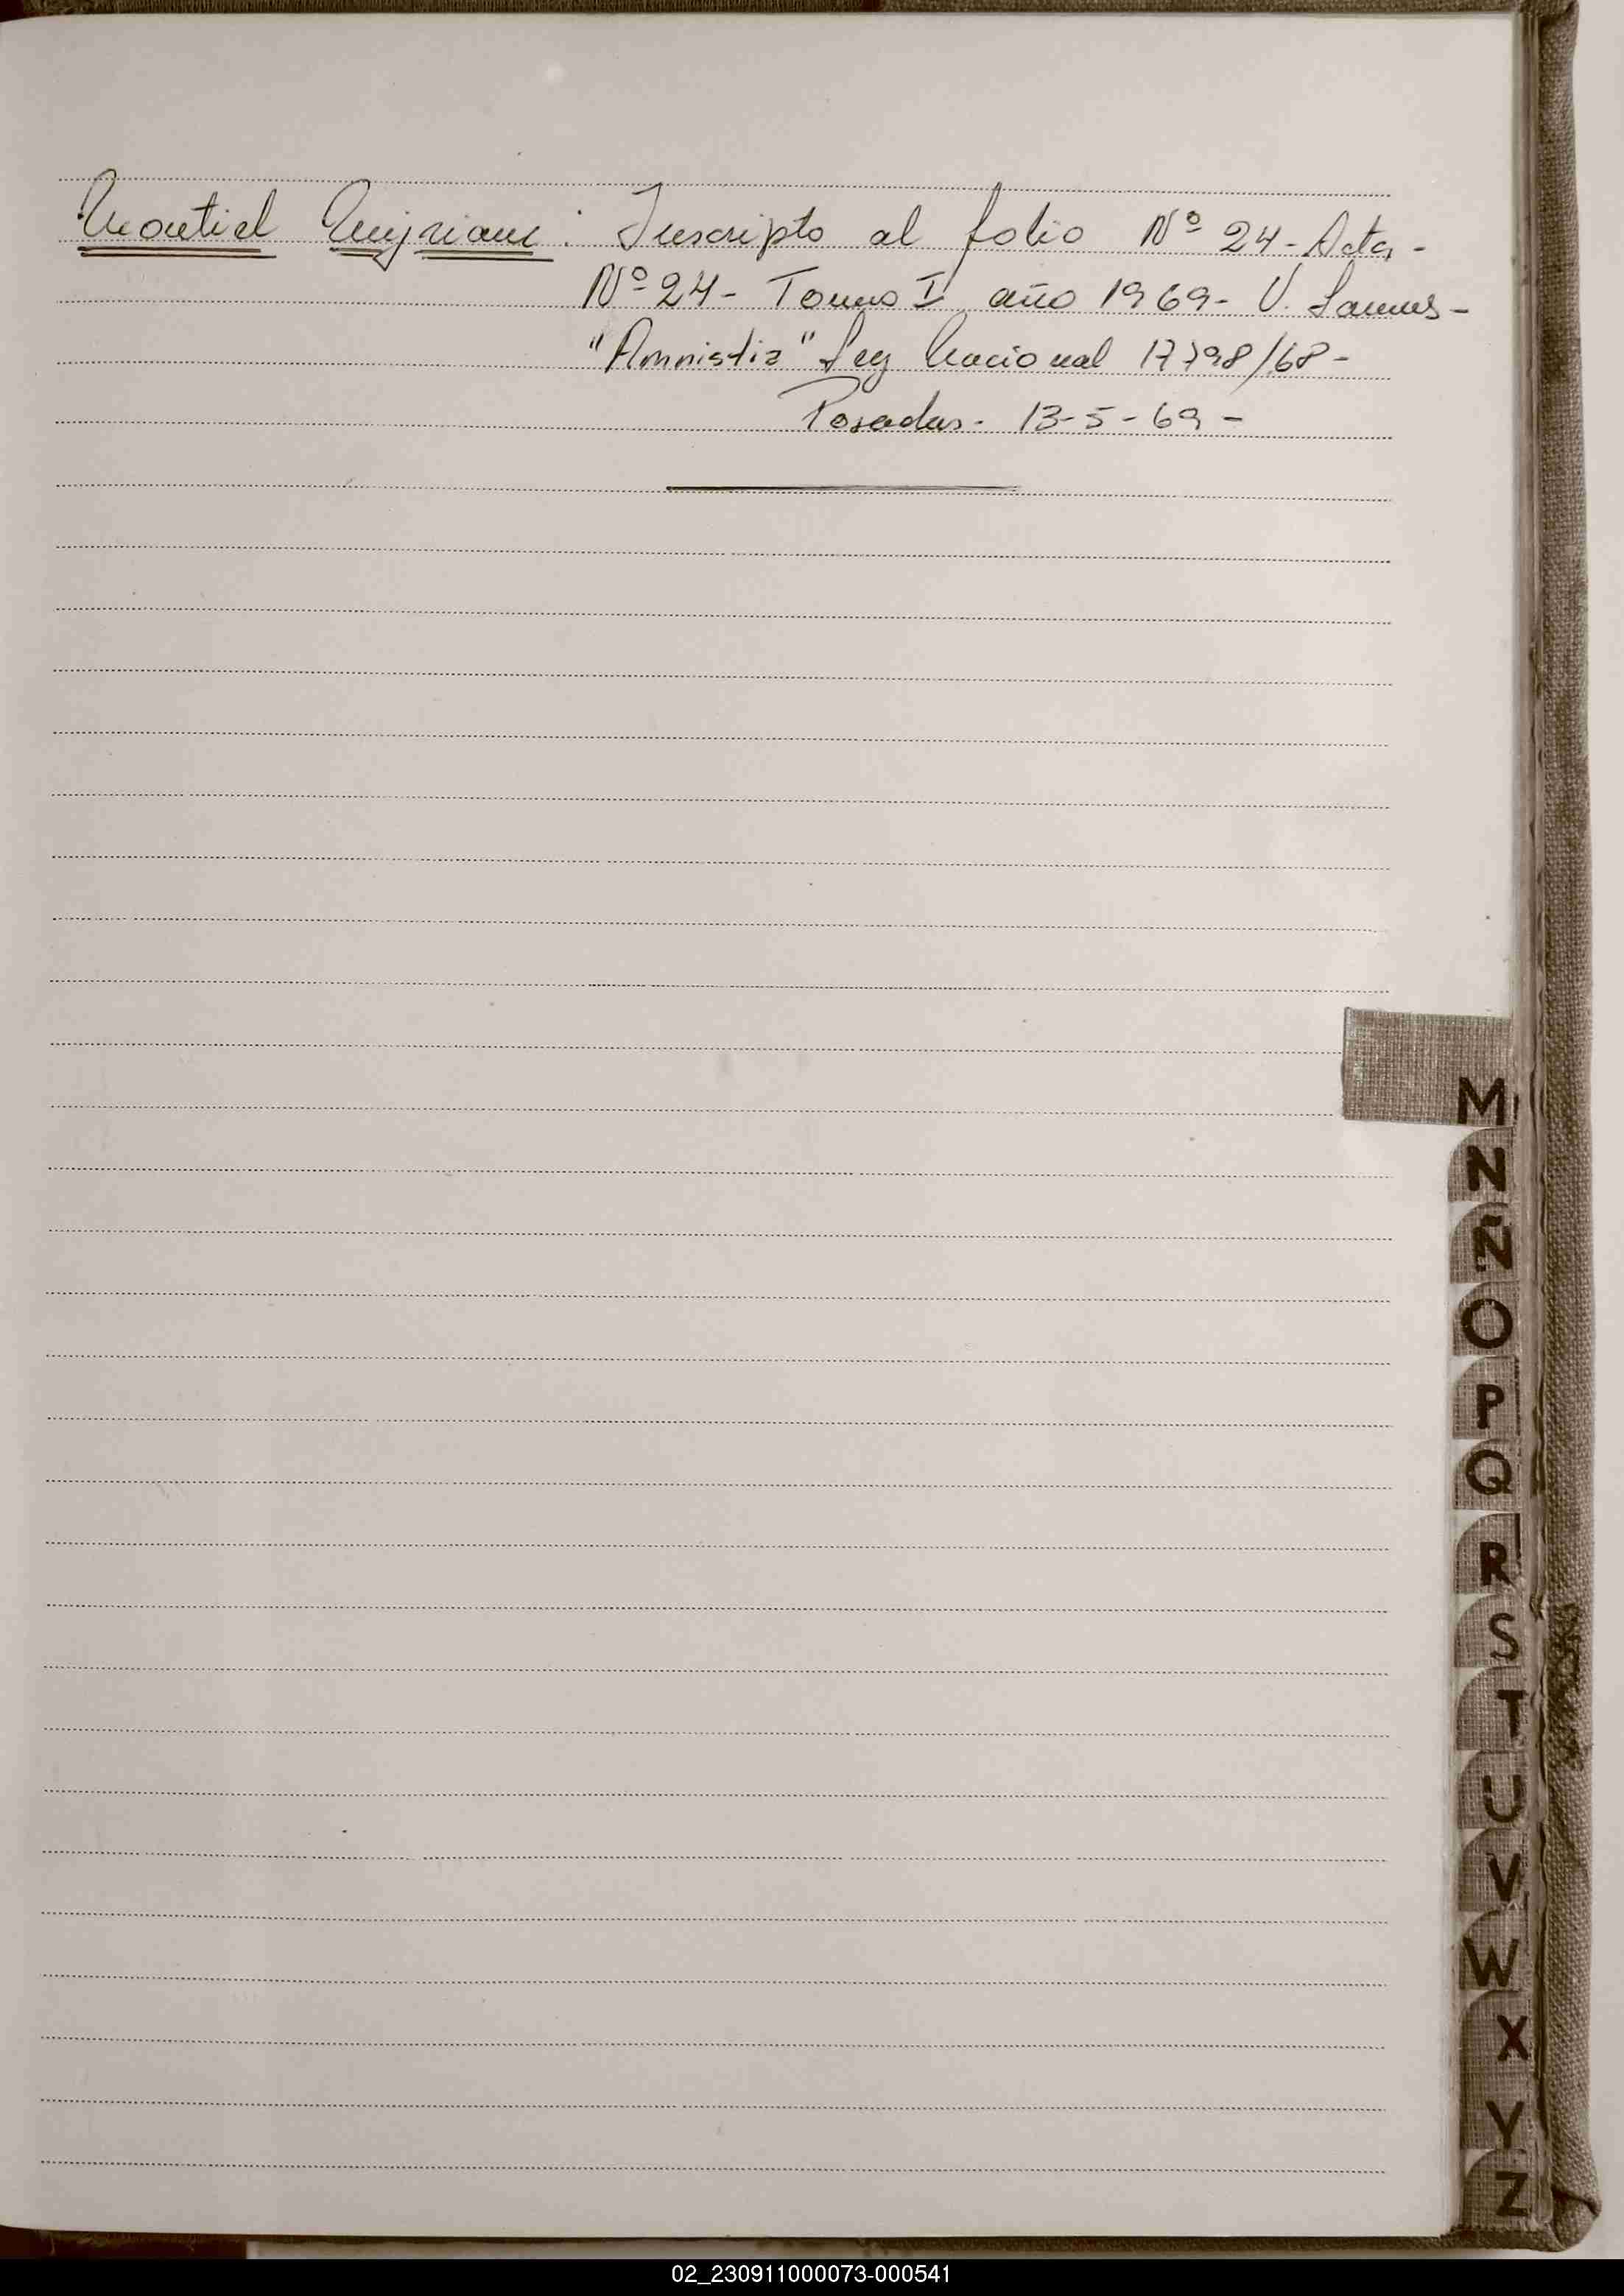 Montiel Mijriam: Inscripto al folio Nº 24- Acta-
Nº 24- Tomo I año 1969- V. Lannus-
"Amnistia" Ley Nacional 17798/68-
Posadas- 13-5-69-
M
N
Ñ
O
P
Q
R
S
T
U
V
W
X
Y
Z
02_230911000073-000541